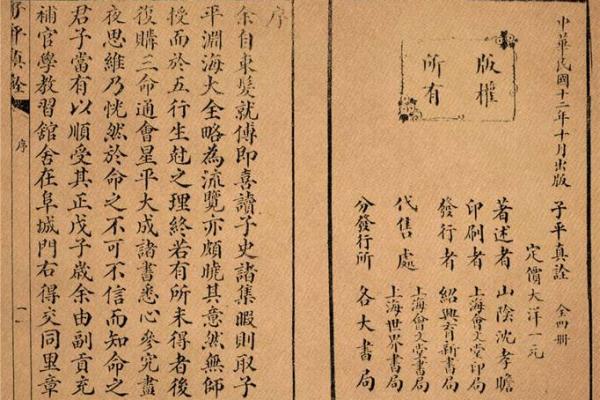 中華民國十二年十月出版
版權
所有
子平真詮 全四册
定價大洋一元
著述者 山陰沈孝瞻
印刷者 上海會文堂印局
發行者 紹興育新書局
代售處 上海會文堂書局
上海世界書局
分發行所 各大書局
序
余自束髮就傅即喜讀子史諸集暇則取子
平淵海大全略為流覽亦頗曉其意然無師
授而於五行生尅之理終若有所未得者後
復購三命通會星平大成諸書悉心參究晝
夜思維乃恍然於命之不可不信而知命之
君子當有以順受其正戊子歲余由副貢充
補官學教習舘舍在阜城門右得交同里章
子平真詮 序 一